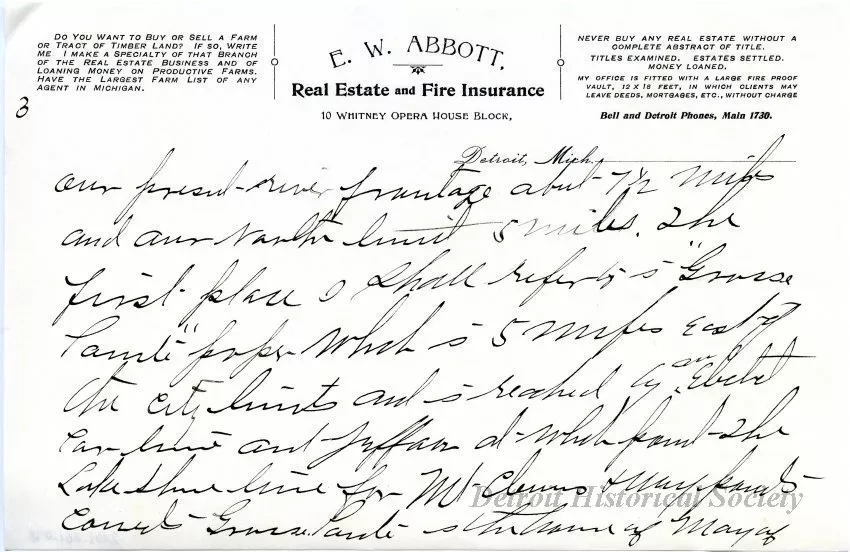 DO YOU WANT TO BUY OR SELL A FARM
OR TRACT OF TIMBER LAND? IF SO, WRITE
ME I MAKE A SPECIALTY OF THAT BRANCH
OF THE REAL ESTATE BUSINESS AND OF
LOANING MONEY ON PRODUCTIVE FARMS.
HAVE THE LARGEST FARM LIST OF ANY
AGENT IN MICHIGAN.
E. W. ABBOTT,
Real Estate and Fire Insurance
10 WHITNEY OPERA HOUSE BLOCK,
NEVER BUY ANY REAL ESTATE WITHOUT A
COMPLETE ABSTRACT OF TITLE.
TITLES EXAMINED. ESTATES SETTLED.
MONEY LOANED.
MY OFFICE IS FITTED WITH A LARGE FIRE PROOF
VAULT, 12 X 18 FEET, IN WHICH CLIENTS MAY
LEAVE DEEDS, MORTGAGES, ETC., WITHOUT CHARGE
Bell and Detroit Phones, Main 1730.
3
Detroit, Mich.,
our present river frontage about 7 1/2 miles
and our North limit 5 miles. The
first place I shall refer to is "Grosse
Pointe" proper which is 5 miles East of
the city limits and is reached by an Electric
car line and Jefferson at which point the
Lake Shore line for Mt Clemens & many points
connects Grosse Pointe is the home of many of
Detroit Historical Society